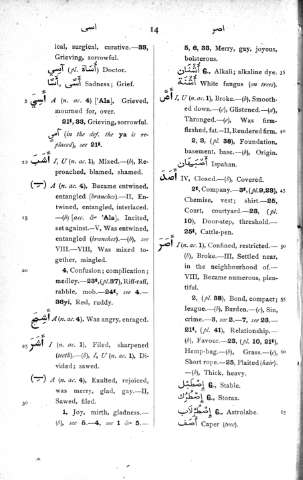 اسى
14
اصر
ical, surgical, curative.—33,
Grieving, sorrowful.
آسِي (pl. أُسَاة) Doctor.
أَسًى, Sadness; Grief.
أَسِيَ A (n. ac. 4) ['Ala], Grieved,
mourned for, over.
21ᵗ, 33, Grieving, sorrowful.
آسِي (in the def. the ya is re-
placed), see 21ᵗ.
أَشَبَ I, U (n. ac. 1), Mixed.—(b), Re-
proached, blamed, shamed.
A (n. ac. 4), Became entwined,
entangled (branches).—II, En-
twined, entangled, interlaced.
—(b) [acc. & 'Ala], Incited,
set against.—V, Was entwined,
entangled (branches).—(b), see
VIII.—VIII, Was mixed to-
gether, mingled.
4, Confusion; complication;
rabble, mob.—24ᵗ, see 4.—
Red, ruddy.
A (n. ac. 4), Was angry, enraged.
أَشَرَ I (n. ac. 1), Filed, sharpened
(teeth).—(b), I, U (n. ac. 1), Di-
vided; sawed.
A (n. ac. 4), Exalted, rejoiced,
was merry, glad, gay.—II,
Sawed, filed.
1, Joy, mirth, gladness.—
(b), see 5.—4, see 1 & 5.—
5, 6, 33, Merry, gay, joyous,
boisterous.
أُشْنَان G., Alkali; alkaline dye.
أُشْنَة White fungus (on trees).
I, U (n. ac. 1), Broke.—(b), Smooth-
ed down.—(c), Glistened.—(d),
Thronged.—(e), Was firm-
fleshed, fat.—II, Rendered firm.
2, 3, (pl. 38), Foundation,
basement, base.—(b), Origin.
اصبهان Ispahan.
IV, Closed.—(b), Covered.
Chemise, vest; shirt.—25,
Court, courtyard.—23, (pl.
10), Door-step, threshold.—
25ᵗ, Cattle-pen.
أَصَرَ I (n. ac. 1), Confined, restricted.—
(b), Broke.—III, Settled near,
in the neighbourhood of.—
VIII, Became numerous, plen-
tiful.
2, (pl. 38), Bond, compact;
league.—(b), Burden.—(c), Sin,
crime.—3, see 2.—7, see 23.—
21ᵗ, (pl. 41), Relationship.—
(b), Favour.—23, (pl. 10, 21ᵗ),
Hemp-bag.—(b), Grass.—(c),
Short rope.—25, Plaited (hair).
—(b), Thick, heavy.
إِصْطَبْل G., Stable.
G., Storax.
G., Astrolabe.
Caper (tree).